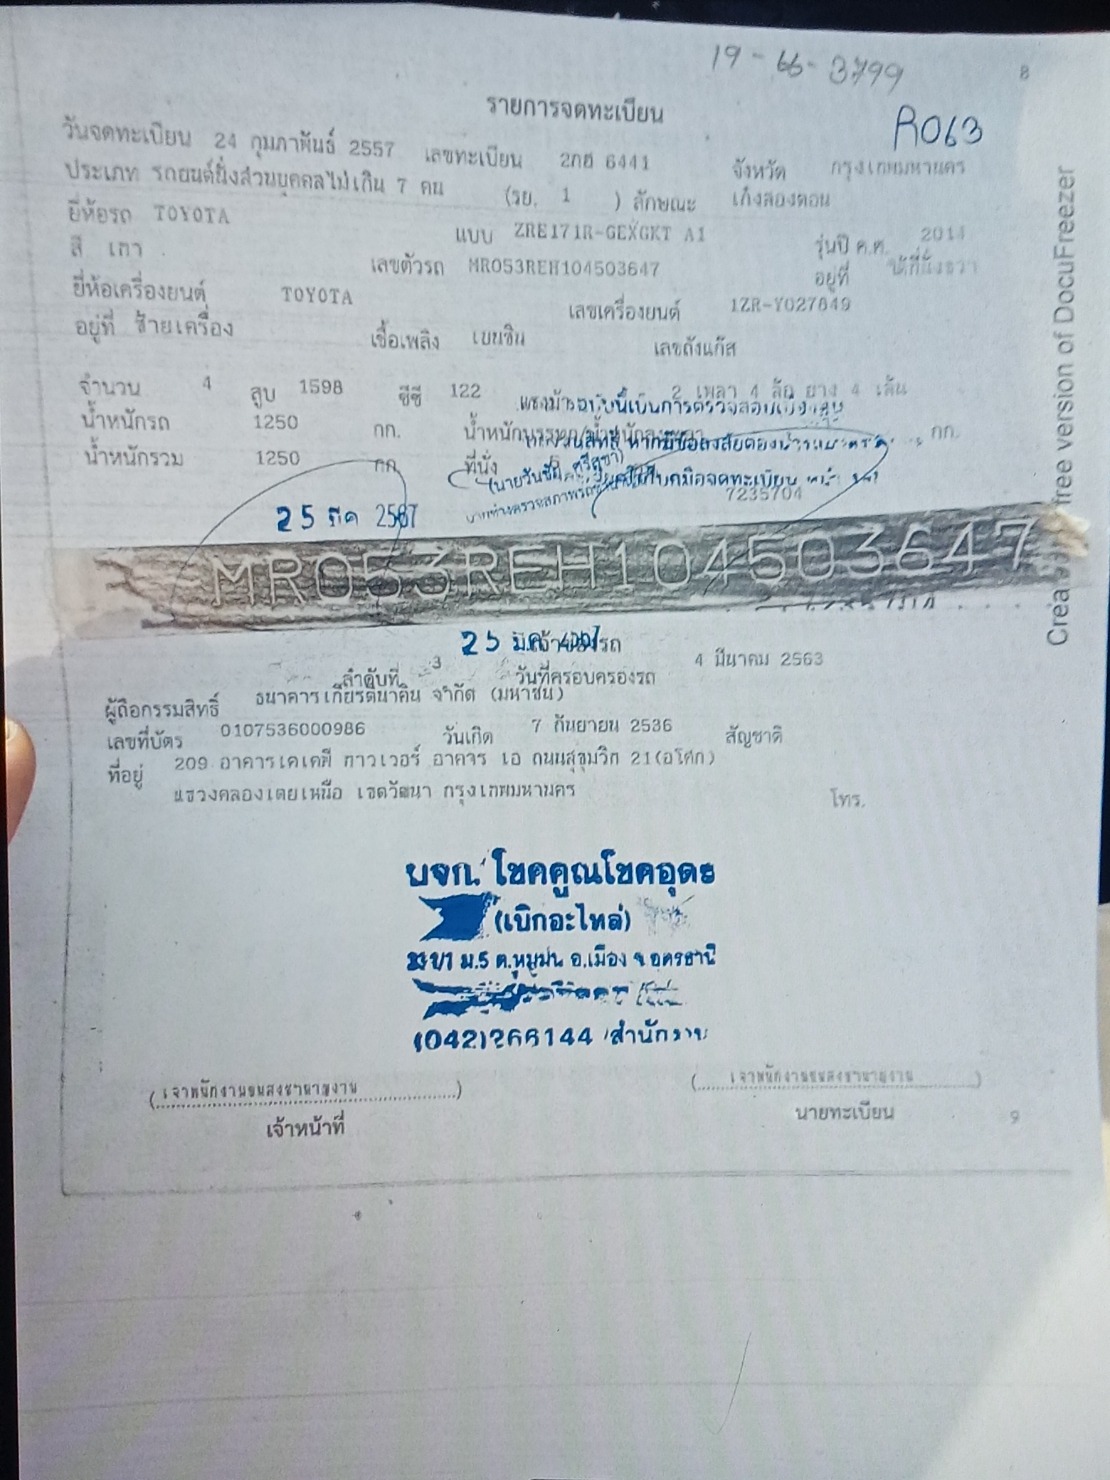 19-66-3799
8
รายการจดทะเบียน
R063
วันจดทะเบียน 24 กุมภาพันธ์ 2557 เลขทะเบียน 6441 จังหวัด กรุงเทพมหานคร
ประเภท รถยนต์นั่งส่วนบุคคลไม่เกิน 7 คน (รย. 1 ) ลักษณะ เก๋งสองตอน
ยี่ห้อรถ TOYOTA แบบ ZRE171R-GEXGKT A1 รุ่นปี ค.ศ. 2014
สี เทา เลขตัวรถ MR053REH104503647 อยู่ที่
ยี่ห้อเครื่องยนต์ TOYOTA เลขเครื่องยนต์ 1ZR-Y027849
อยู่ที่ ซ้ายเครื่อง เชื้อเพลิง เบนซิน เลขถังแก๊ส
จำนวน 4 สูบ 1598 ซีซี 122 2 เพลา 4 ล้อ ยาง 4 เส้น
น้ำหนักรถ 1250 กก. กก.
น้ำหนักรวม 1250 กก. ที่นั่ง
7235704
25 มีค 2567
MR053REH104503647
25 มีค
เจ้าของรถ
ลำดับที่ 3 วันที่ครอบครองรถ 4 มีนาคม 2563
ผู้ถือกรรมสิทธิ์ ธนาคารเกียรตินาคิน จำกัด (มหาชน)
เลขที่บัตร 0107536000986 วันเกิด 7 กันยายน 2536 สัญชาติ
ที่อยู่ 209 อาคารเคเคพี ทาวเวอร์ อาคาร เอ ถนนสุขุมวิท 21(อโศก)
แขวงคลองเตยเหนือ เขตวัฒนา กรุงเทพมหานคร โทร.
บจก. โชคคูณโชคอุดร
(เบิกอะไหล่)
ม.5 ต.หมูม่น อ.เมือง จ.อุดรธานี
(042)266144 สำนักงาน
(เจ้าพนักงานขนส่งชำนาญงาน) (เจ้าพนักงานขนส่งชำนาญงาน)
เจ้าหน้าที่ นายทะเบียน
9
free version of DocuFreezer